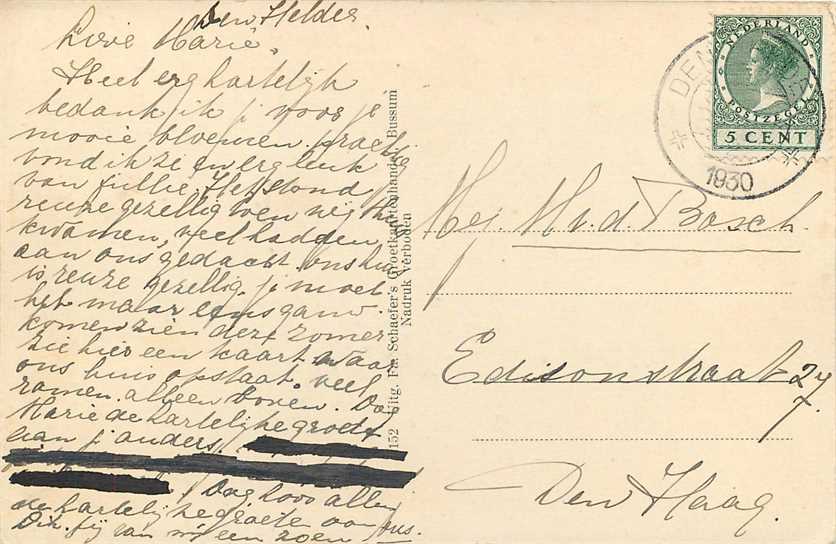 Den Helder
Lieve Marie,
Heel erg hartelijk
bedank ik j voor je
mooie bloemen. prachtig
vond ik ze en erg leuk
van jullie. Het stond
reuze gezellig toen wij hier
kwamen, veel hadden
aan ons gedacht. ons huis
is reuze gezellig. j moet
het maar eens gauw
komen zien deze zomer
zie hier een kaart waar
ons huis opstaat. veel
ramen. alleen boven. Dag
Marie de hartelijke groeten
aan j anders
Dag hoor allen
de hartelijke groeten van ons.
Dik. jij van mij een zoen
152 Uitg. Fa. Schaefer's Grootkaartenhandel, Bussum
Nadruk Verboden
NEDERLAND
POSTZEGEL
5 CENT
DEN
1930
Mej. M. v. d. Bosch.
Edisonstraat 27
Den Haag.